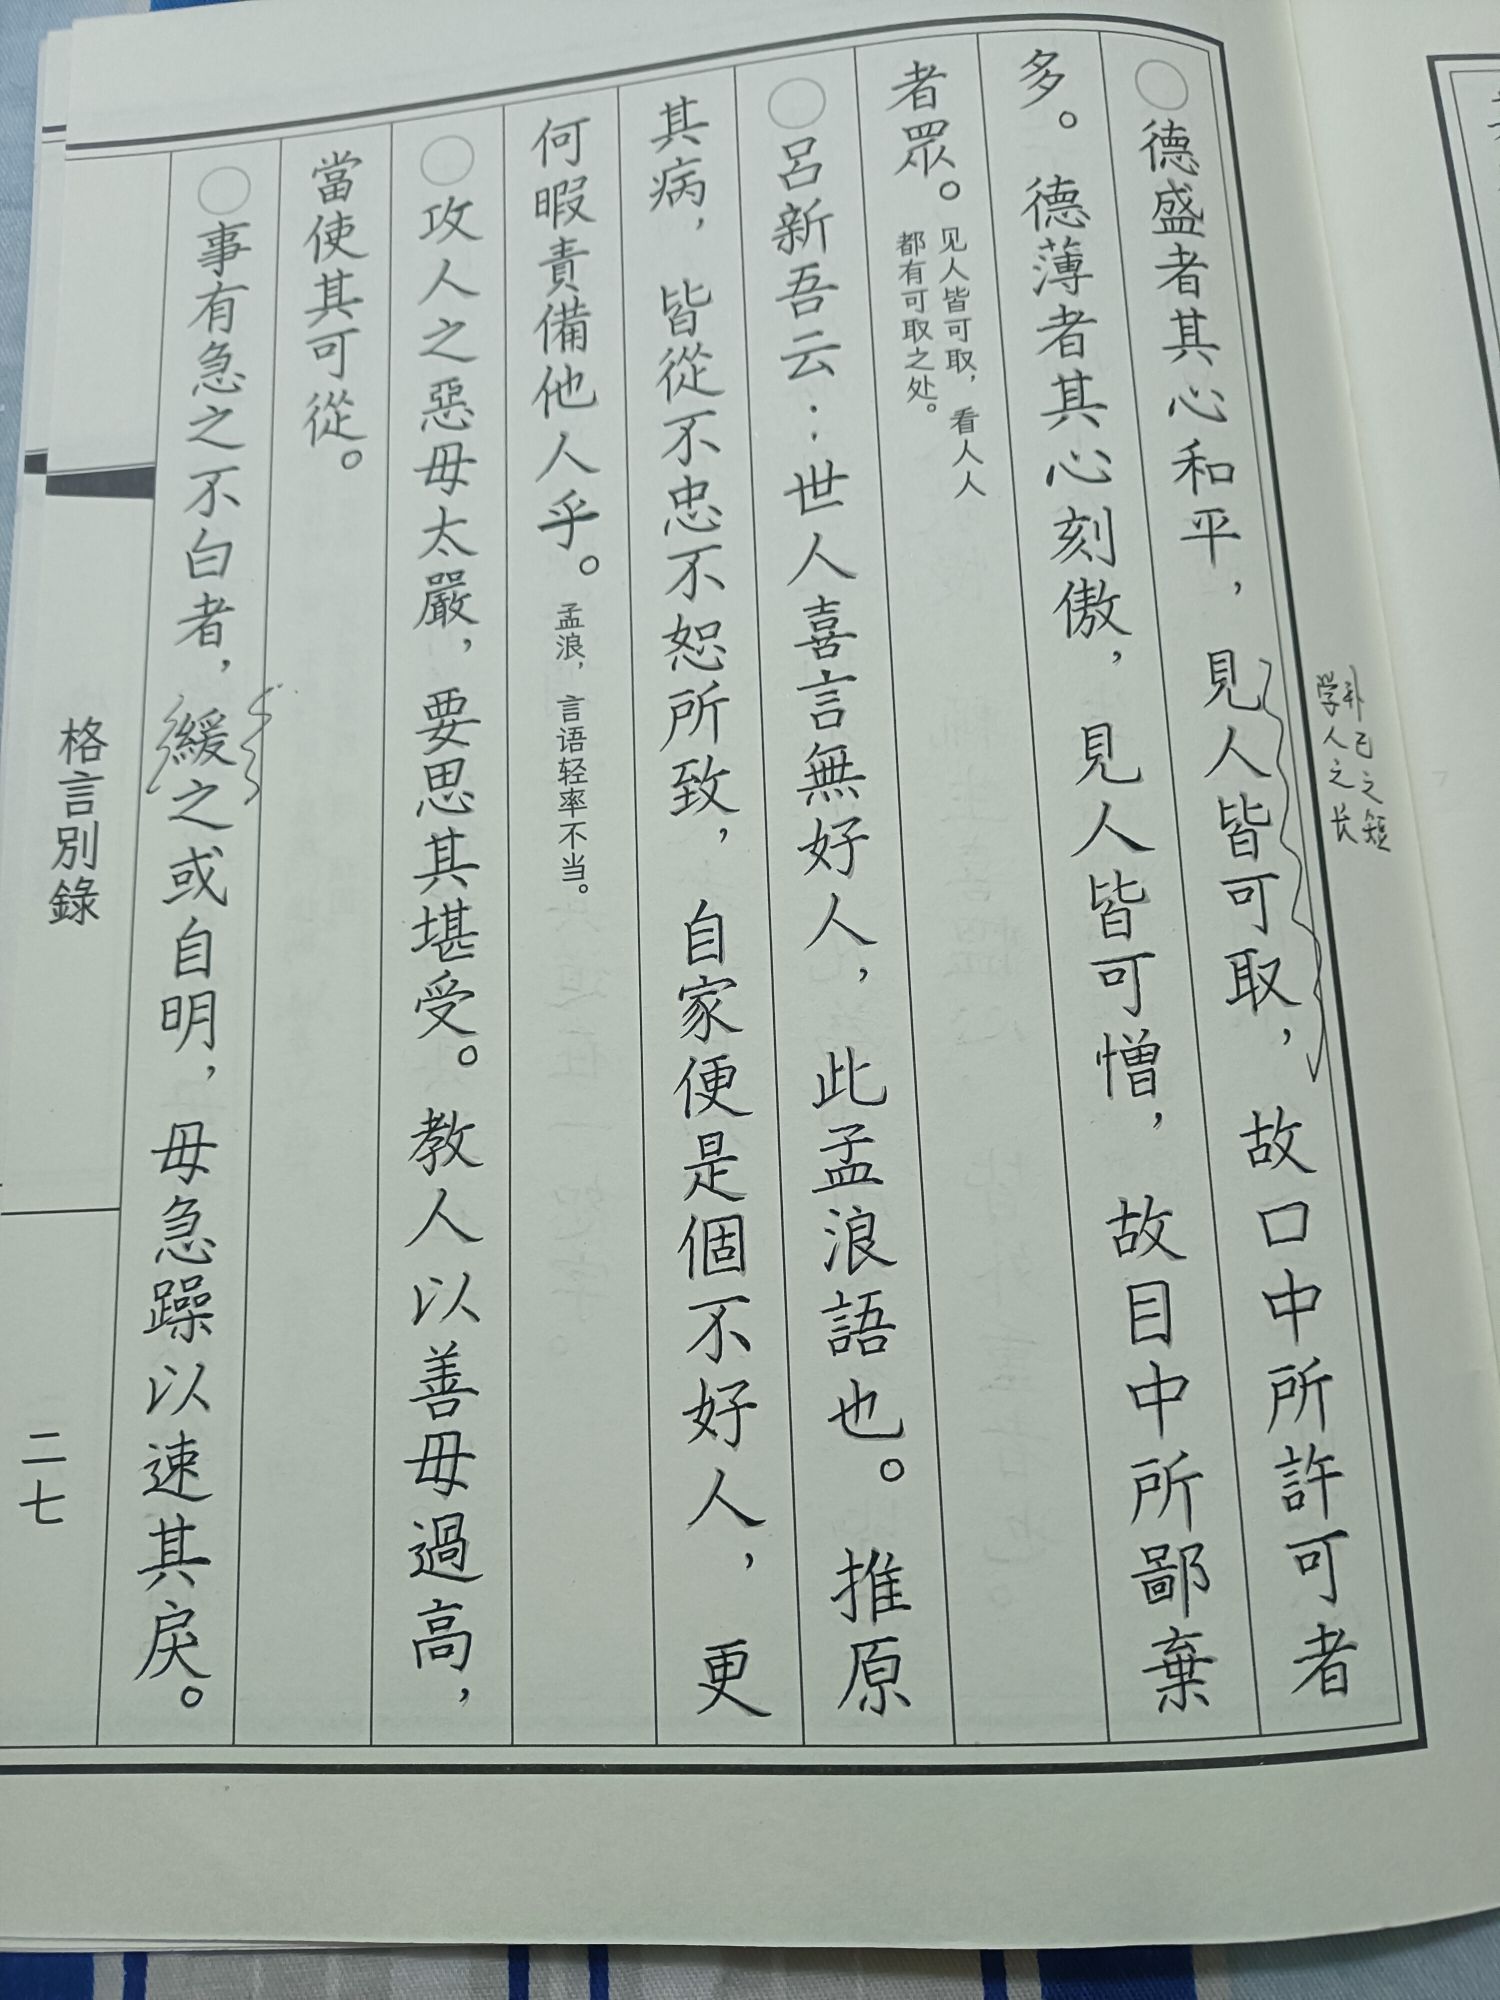 ○德盛者其心和平，見人皆可取，故口中所許可者
多。德薄者其心刻傲，見人皆可憎，故目中所鄙棄
者眾。
见人皆可取，看人人
都有可取之处。
○呂新吾云：世人喜言無好人，此孟浪語也。推原
其病，皆從不忠不恕所致，自家便是個不好人，更
何暇責備他人乎。孟浪，言语轻率不当。
○攻人之惡毋太嚴，要思其堪受。教人以善毋過高，
當使其可從。
○事有急之不白者，緩之或自明，毋急躁以速其戾。
格言別錄
二七
补己之短
学人之长